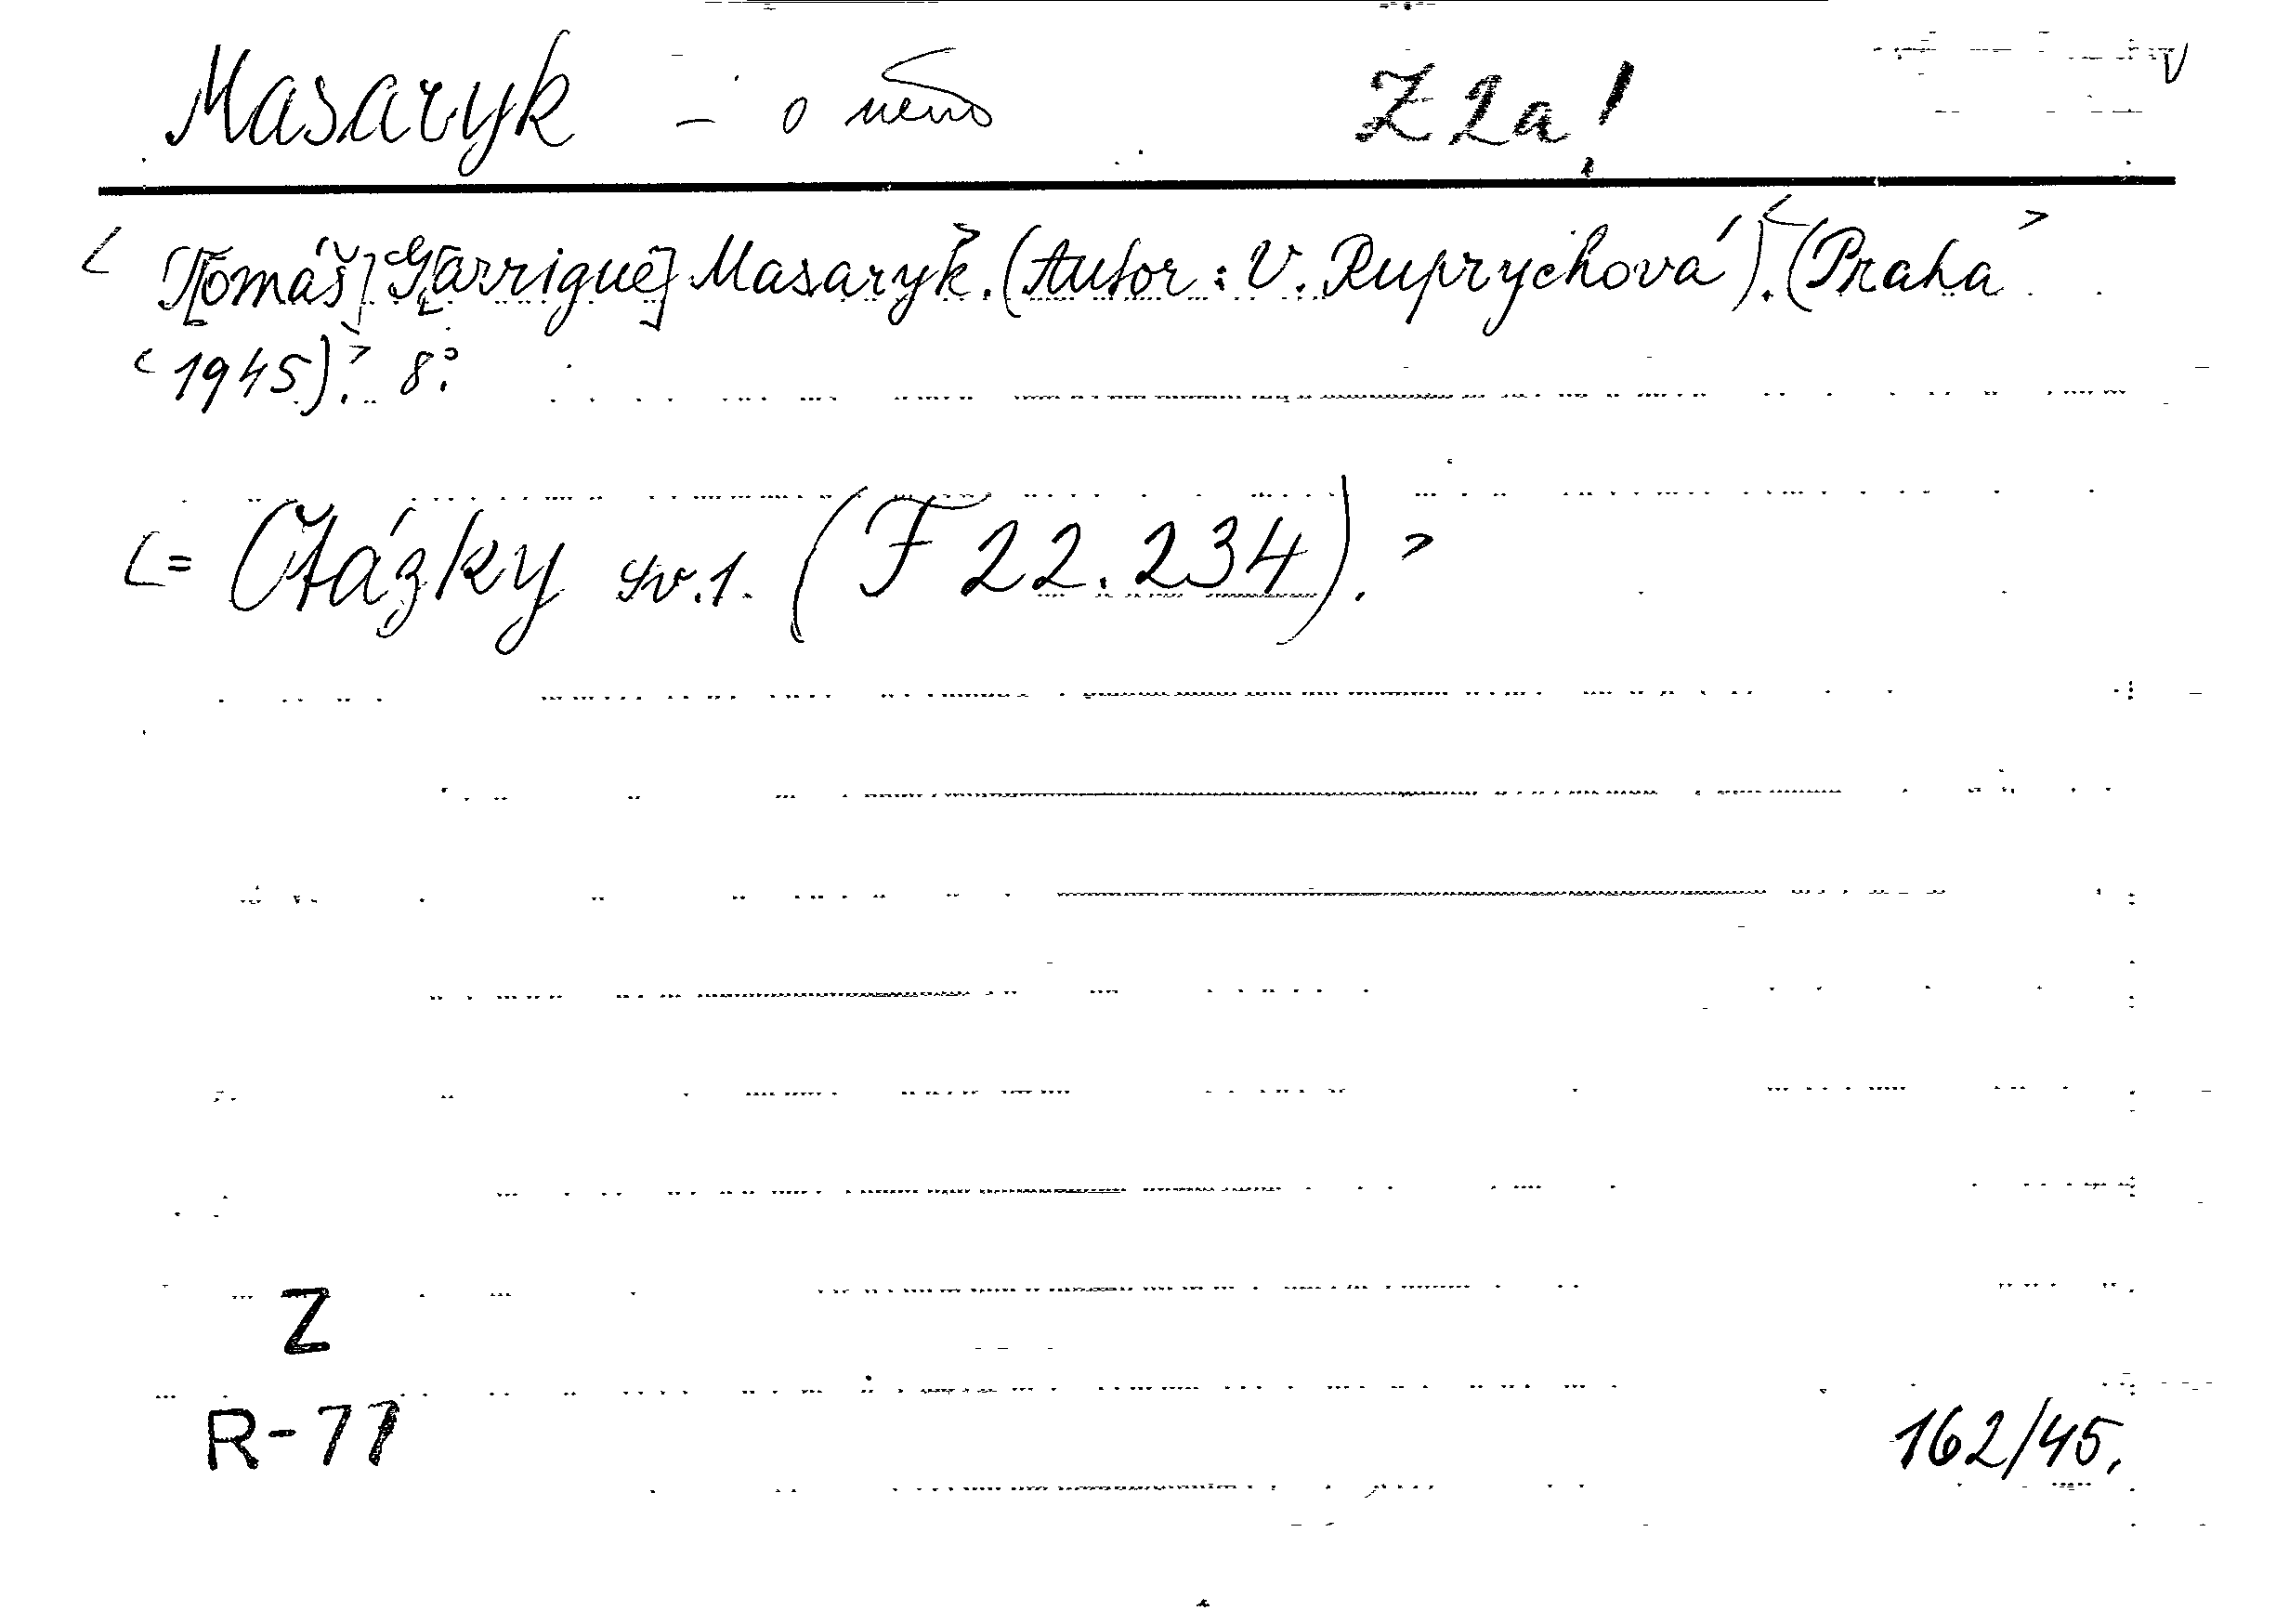 Masaryk - o něm Z 2a!
< T[omáš] G[arrigue] Masaryk. (Autor: V. Ruprychová). < (Praha >
< 1945). > 8°.
< = Otázky sv. 1. (F 22.234). >
Z
R-77
162/45.